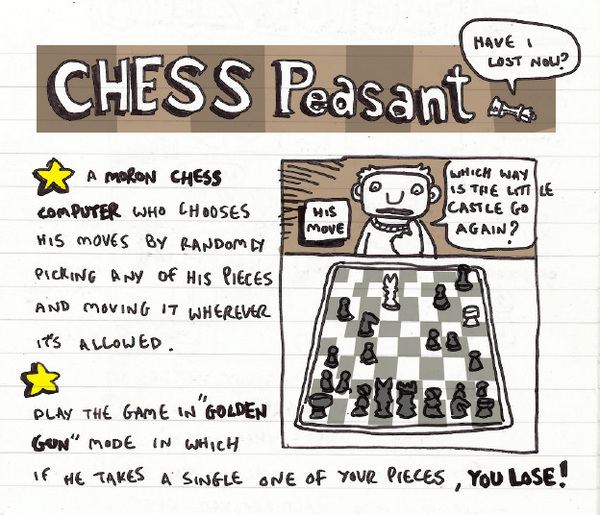 HAVE I
LOST NOW?
CHESS Peasant
A MORON CHESS
COMPUTER WHO CHOOSES
HIS MOVES BY RANDOMLY
PICKING ANY OF HIS PIECES
AND MOVING IT WHEREVER
IT'S ALLOWED.
HIS
MOVE
WHICH WAY
IS THE LITTLE
CASTLE GO
AGAIN?
PLAY THE GAME IN "GOLDEN
GUN" MODE IN WHICH
IF HE TAKES A SINGLE ONE OF YOUR PIECES, YOU LOSE!